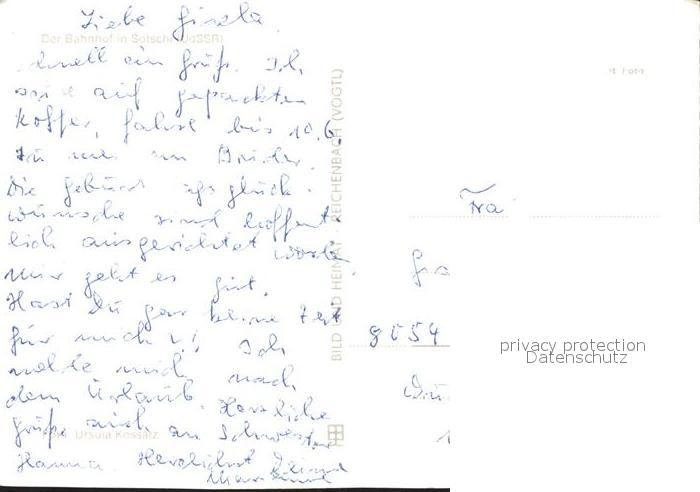 Liebe Gisela
Der Bahnhof in Sotschi (UdSSR)
schnell ein Gruß. Ich
sitze auf gepackten
Koffer, fahre bis 10.6.
zu meinem Bruder.
Die Geburtstagsglück-
wünsche sind hoffent-
lich ausgerichtet worden
Mir geht es gut.
Hast Du gar keine Zeit
für mich?! Ich
melde mich nach
dem Urlaub. Herzliche
Grüße auch an Schwester
Foto: Ursula Kossatz
Hanna. Herzlichst Deine
BILD UND HEIMAT REICHENBACH (VOGTL)
M Foto
Fra
8054
privacy protection
Datenschutz